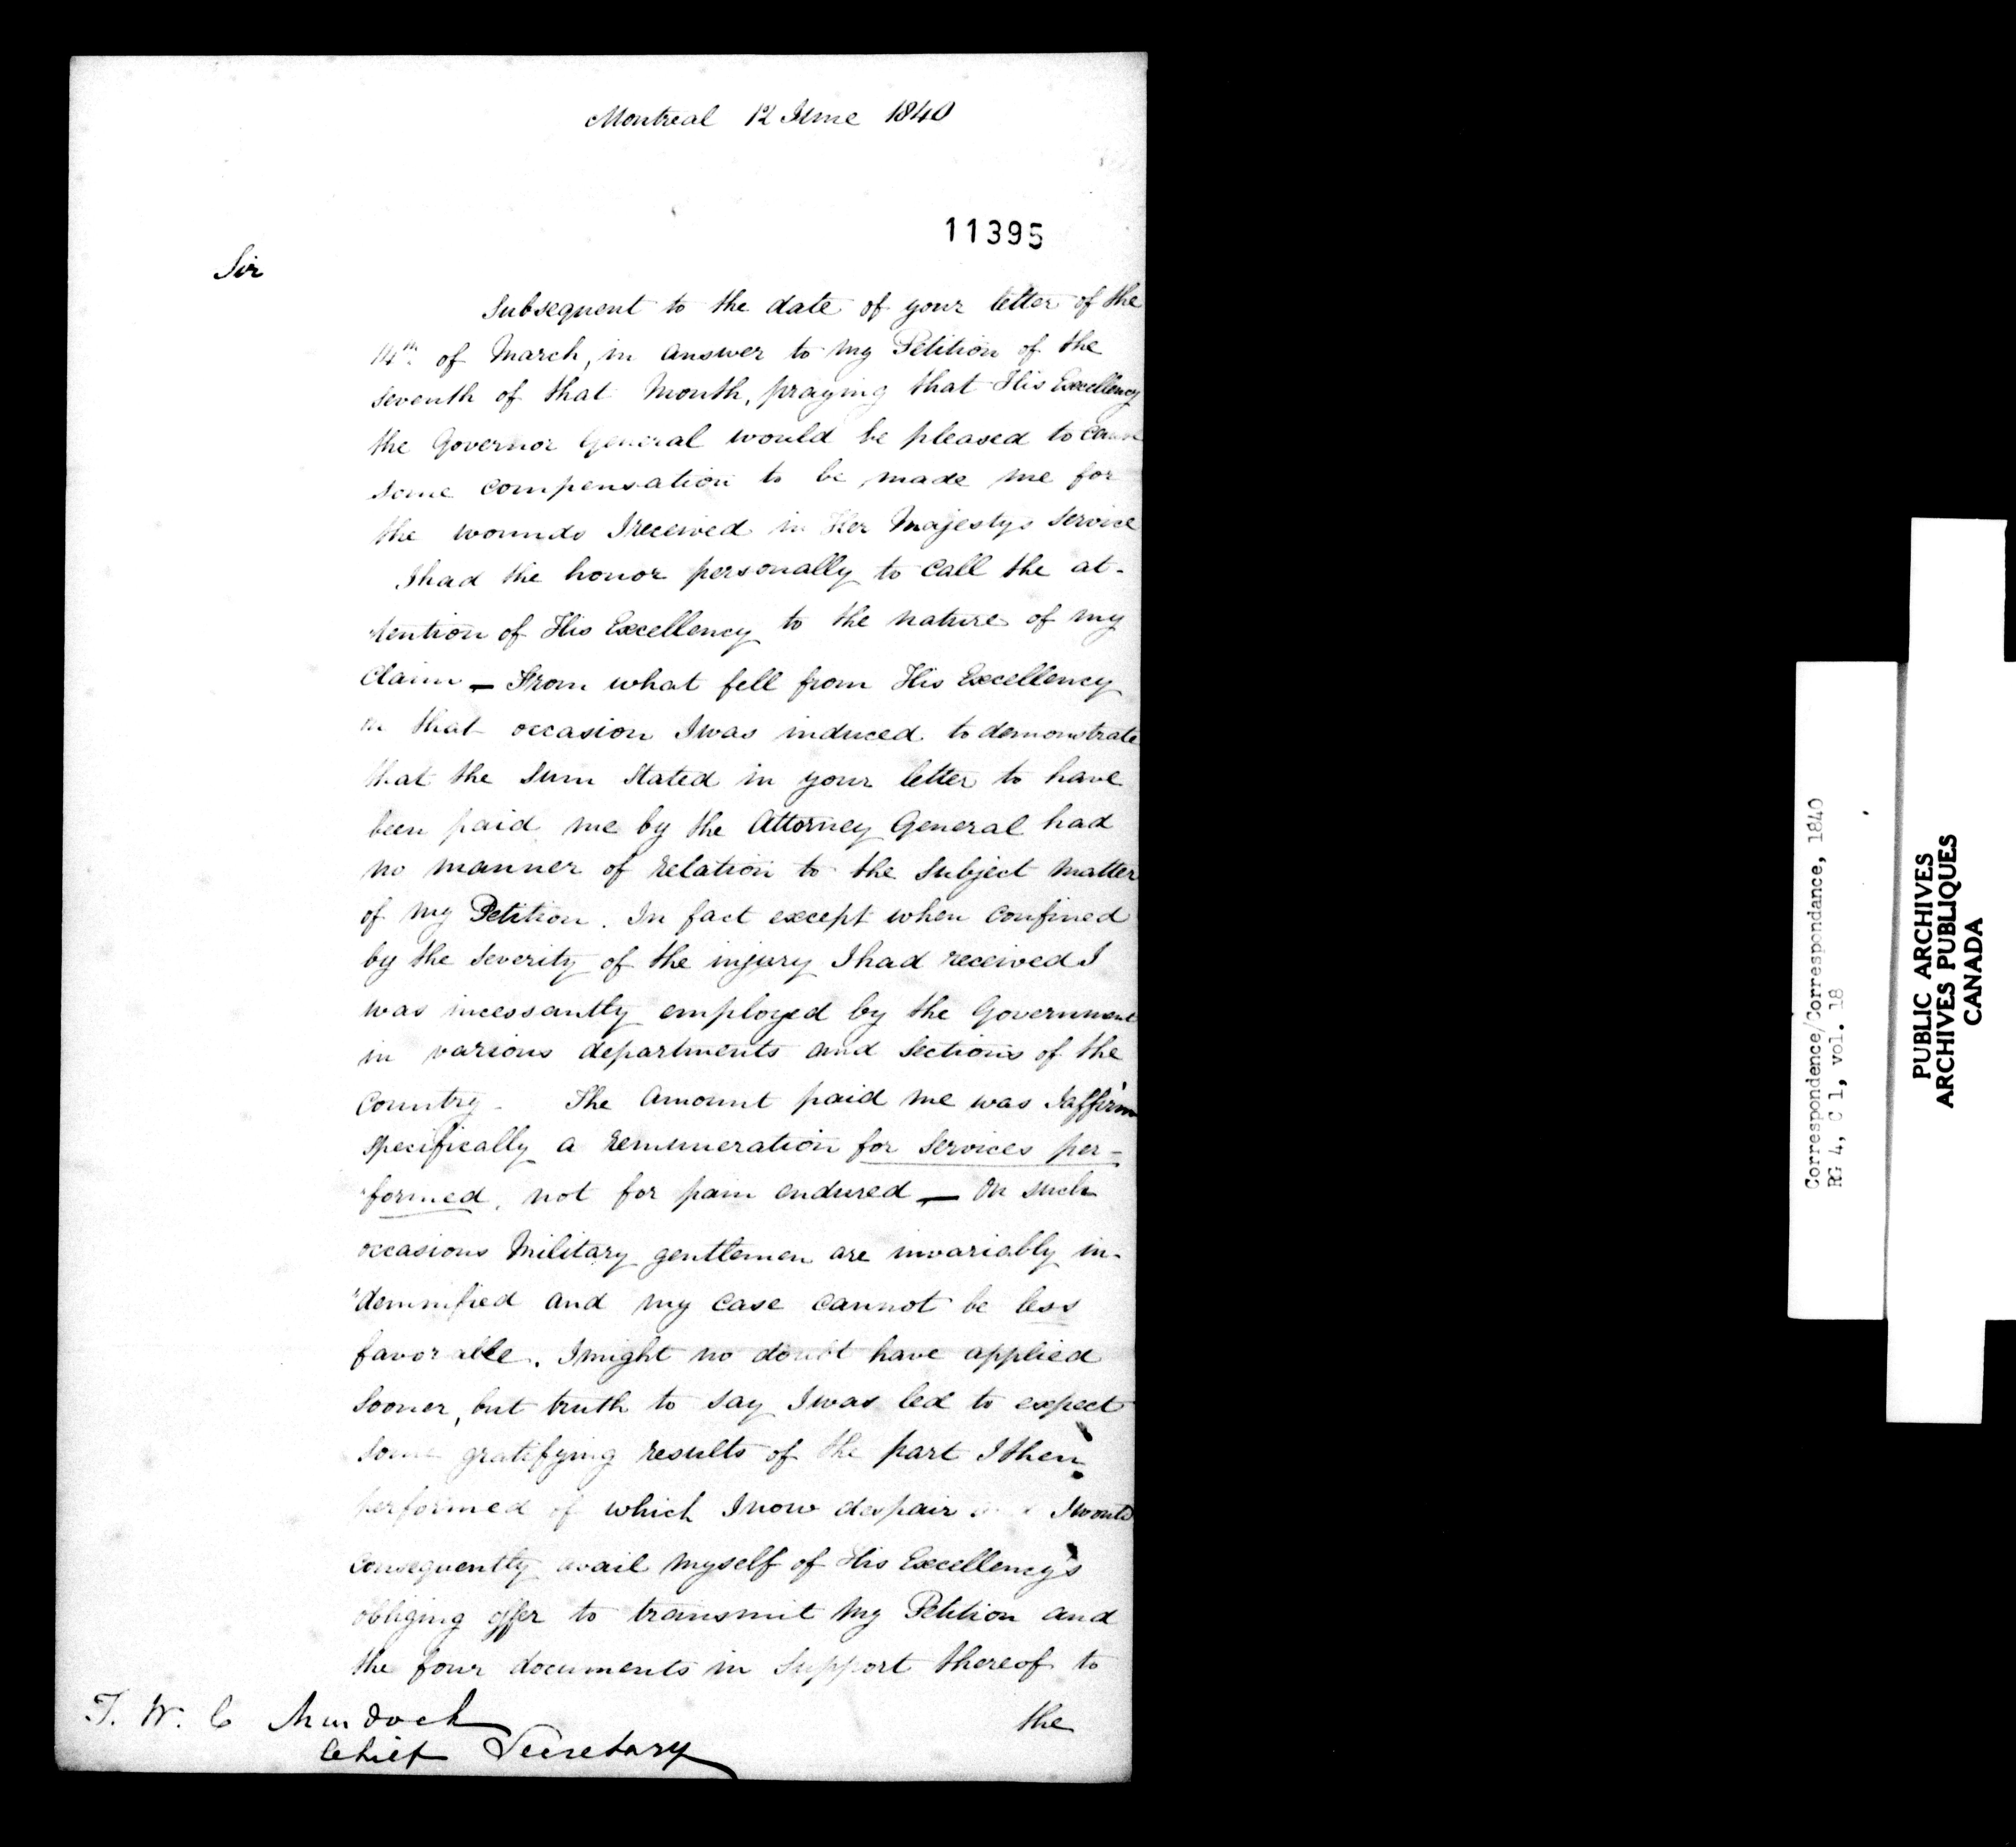 Montreal 12 June 1840
11395
Sir
Subsequent to the date of your letter of the
14th. of March, in answer to my Petition of the
seventh of that Month, praying that His Excellency
the Governor General would be pleased to cause
some compensation to be made me for
the wounds I received in Her Majestys service
I had the honor personally to call the at-
tention of His Excellency to the nature of my
Claim — From what fell from His Excellency
on that occasion I was induced to demonstrate
that the Sum Stated in your letter to have
been paid me by the Attorney General had
no manner of relation to the Subject matter
of my Petition. In fact except when confined
by the severity of the injury I had received I
was incessantly employed by the Government
in various departments and sections of the
Country - The Amount paid me was I affirm
specifically a remuneration for services per-
formed, not for pain endured — On such
occasions Military gentlemen are invariably in-
demnified and my case cannot be less
favorable. I might no doubt have applied
sooner, but truth to say I was led to expect
some gratifying results of the part I then
performed of which I now despair and I would
consequently avail myself of His Excellency's
obliging offer to transmit my Petition and
the four documents in support thereof to
the
T. W. C Murdoch
Chief Secretary
Correspondence/Correspondance, 1840
RG 4, C 1, vol. 18
PUBLIC ARCHIVES
ARCHIVES PUBLIQUES
CANADA